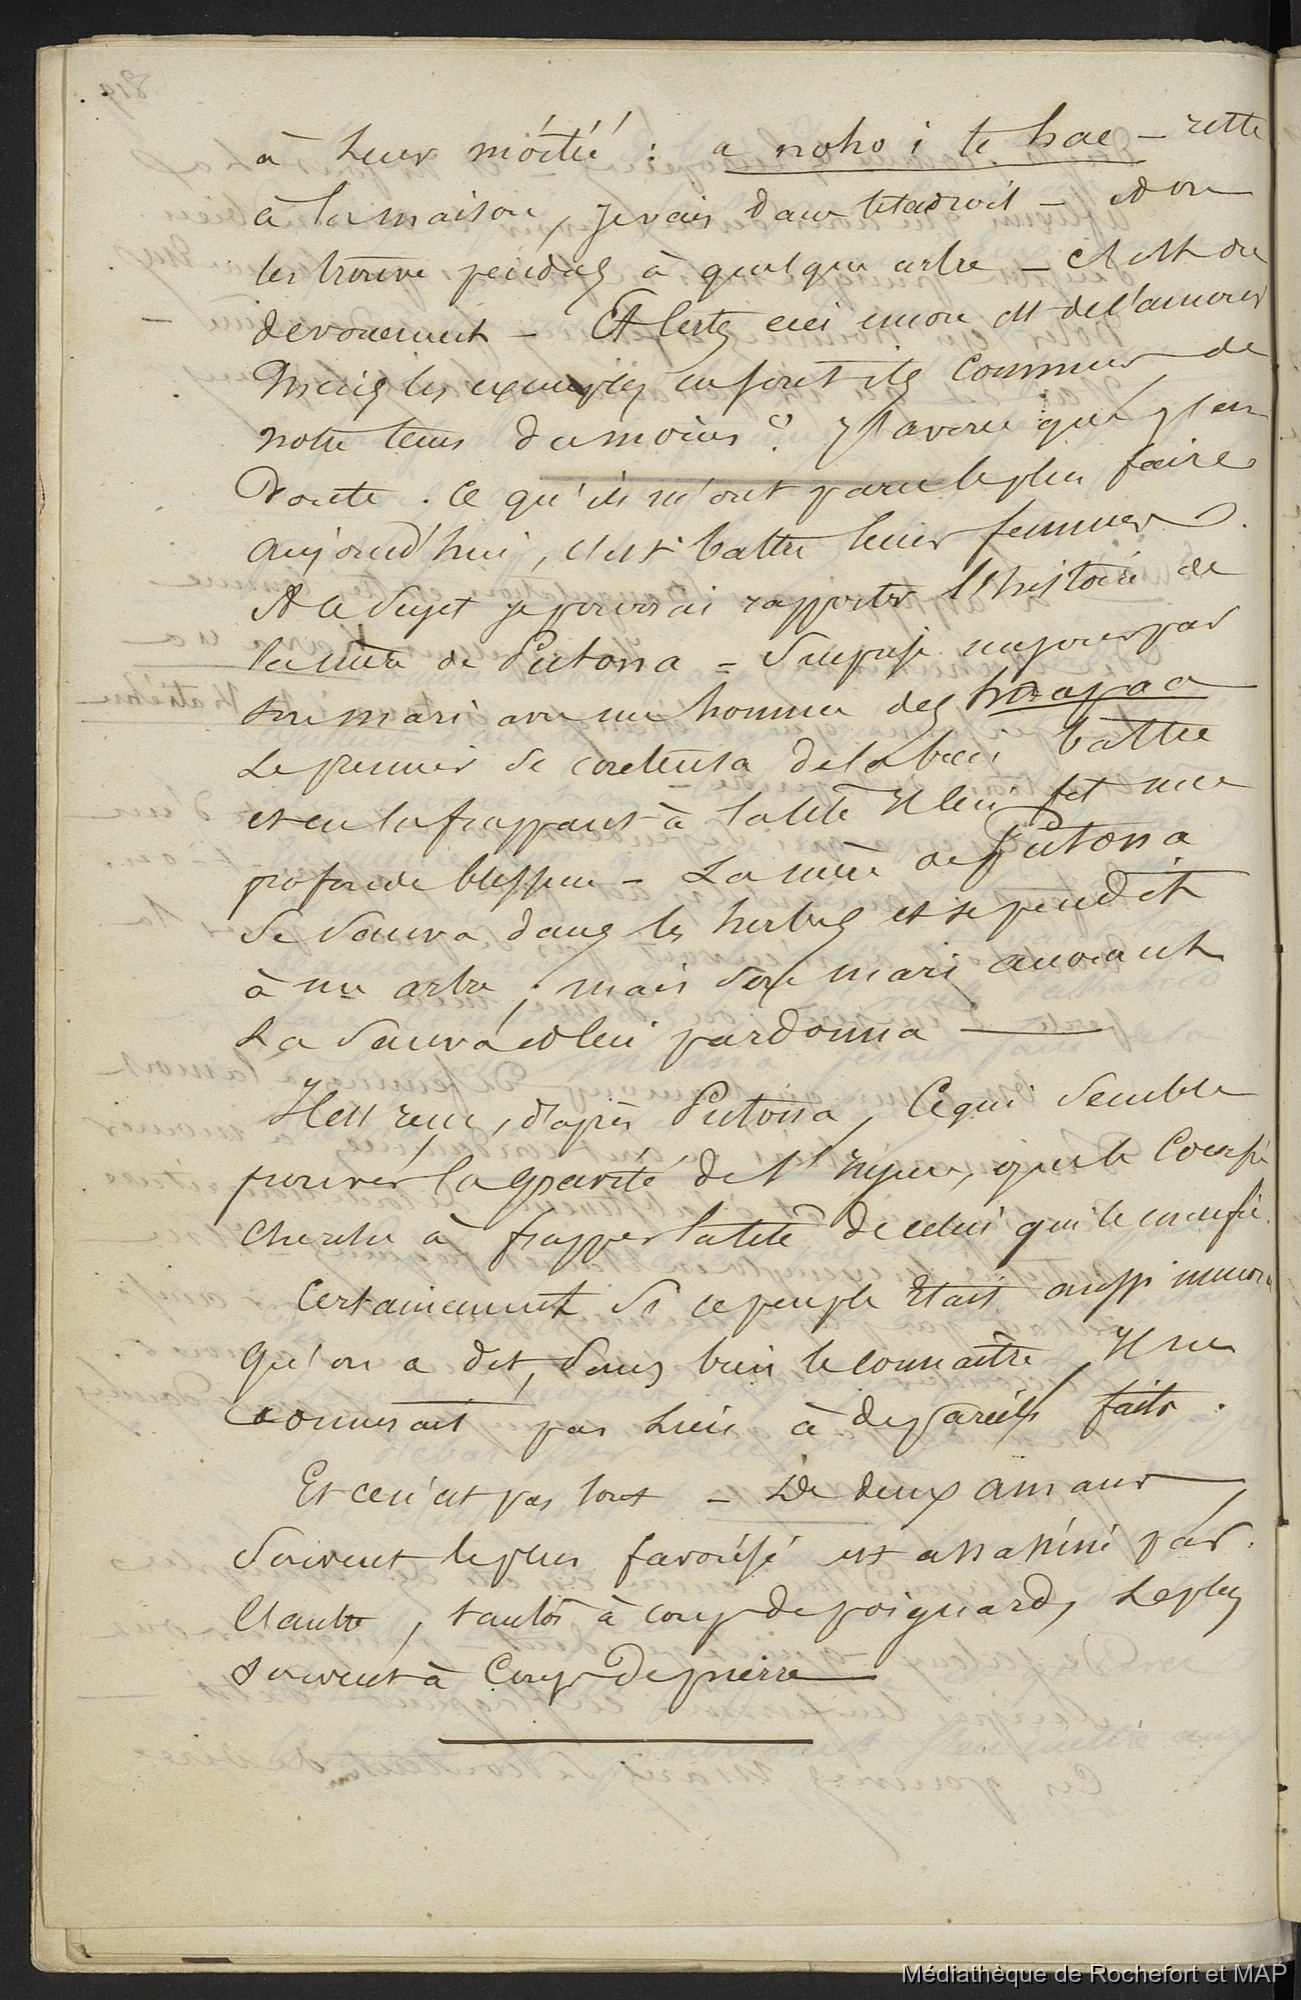 à leur moitié : a noho i te hae – reste
à la maison, je vais dans tel endroit – et on
les trouve pendus à quelque arbre – c'est du
dévouement – Et certes ceci encore est de l'amour
Mais les exemples en sont ils communs de
notre tems du moins ? J'avoue que j'en
doute . Ce qu'ils m'ont paru le plus faire
aujourd'hui, c'est battre leurs femmes.
A ce sujet je pourrai rapporter l'histoire de
la mère de Putona = Surprise un jour par
son mari avec un homme des hapaa
Le premier se contenta de la bien battre
et en la frappant à la tête Il lui fit une
profonde blessure – La mère de Putona
se sauva dans les herbes et se pendit
à un arbre ; mais son mari accourant
la sauva et lui pardonna —
Il est reçu, d'après Putona, ce qui semble
prouver la gravité de l'injure, que le
cherche à frapper la tête de celui qui le
Certainement si ce peuple était aussi
qu'on a dit, sans bien le connaître, Il ne
donnerait pas lieu à de pareils faits .
Et ce n'est pas tout – De deux amans
souvent le plus favorisé est assassiné par
l'autre, tantôt à coup de poignard, le plus
souvent à coup de pierre —
Médiathèque de Rochefort et MAP